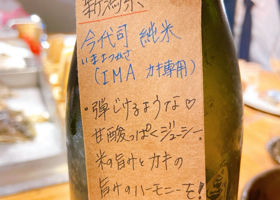 新潟県
今代司 純米
いまよつかさ
(IMA カキ専用)
・弾じけるような♡
甘酸っぱくジューシー。
米の旨味とカキの
旨味のハーモニーを!